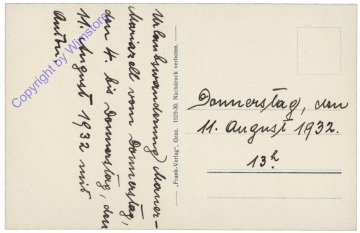 Urlaubswanderung Mauer-
Mariazell vom Donnerstag,
den 4. bis Donnerstag, den
11. August 1932 mit
Anton.
"Frank-Verlag", Graz. 1929-30. Nachdruck verboten.
Donnerstag, den
11. August 1932.
13h
Copyright by Winistore